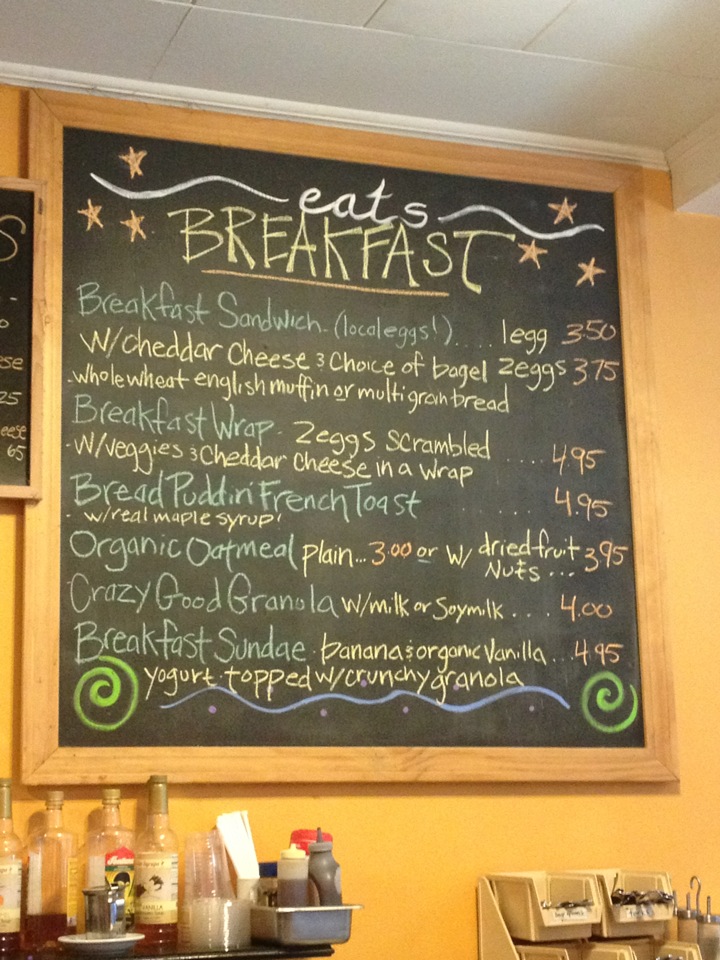 eats
BREAKFAST
Breakfast Sandwich (local eggs!).... 1egg 3.50
w/cheddar Cheese & Choice of bagel 2eggs 3.75
whole wheat english muffin or multi grain bread
Breakfast Wrap 2eggs Scrambled
w/veggies & Cheddar Cheese in a wrap .... 4.95
Bread Puddin' French Toast ...... 4.95
w/real maple syrup!
Organic Oatmeal plain... 3.00 or w/ dried fruit 3.95
Nuts ...
Crazy Good Granola w/milk or Soymilk .... 4.00
Breakfast Sundae banana & organic Vanilla ... 4.95
yogurt topped w/crunchy granola
S
ese
25
eese
65
VANILLA